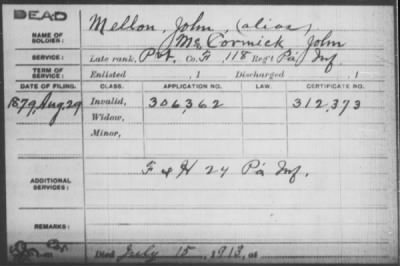 DEAD
NAME OF SOLDIER: Mellon, John, (alias)
McCormick John
SERVICE: Late rank, Pvt, Co. F, 118 Reg't Pa Inf.
TERM OF SERVICE: Enlisted , 1 Discharged , 1
DATE OF FILING. CLASS. APPLICATION NO. LAW. CERTIFICATE NO.
1879, Aug. 29 Invalid, 306,362 312,373
Widow,
Minor,
ADDITIONAL SERVICES: F & H 24 Pa Inf.
REMARKS:
Died July 15, 1913, at